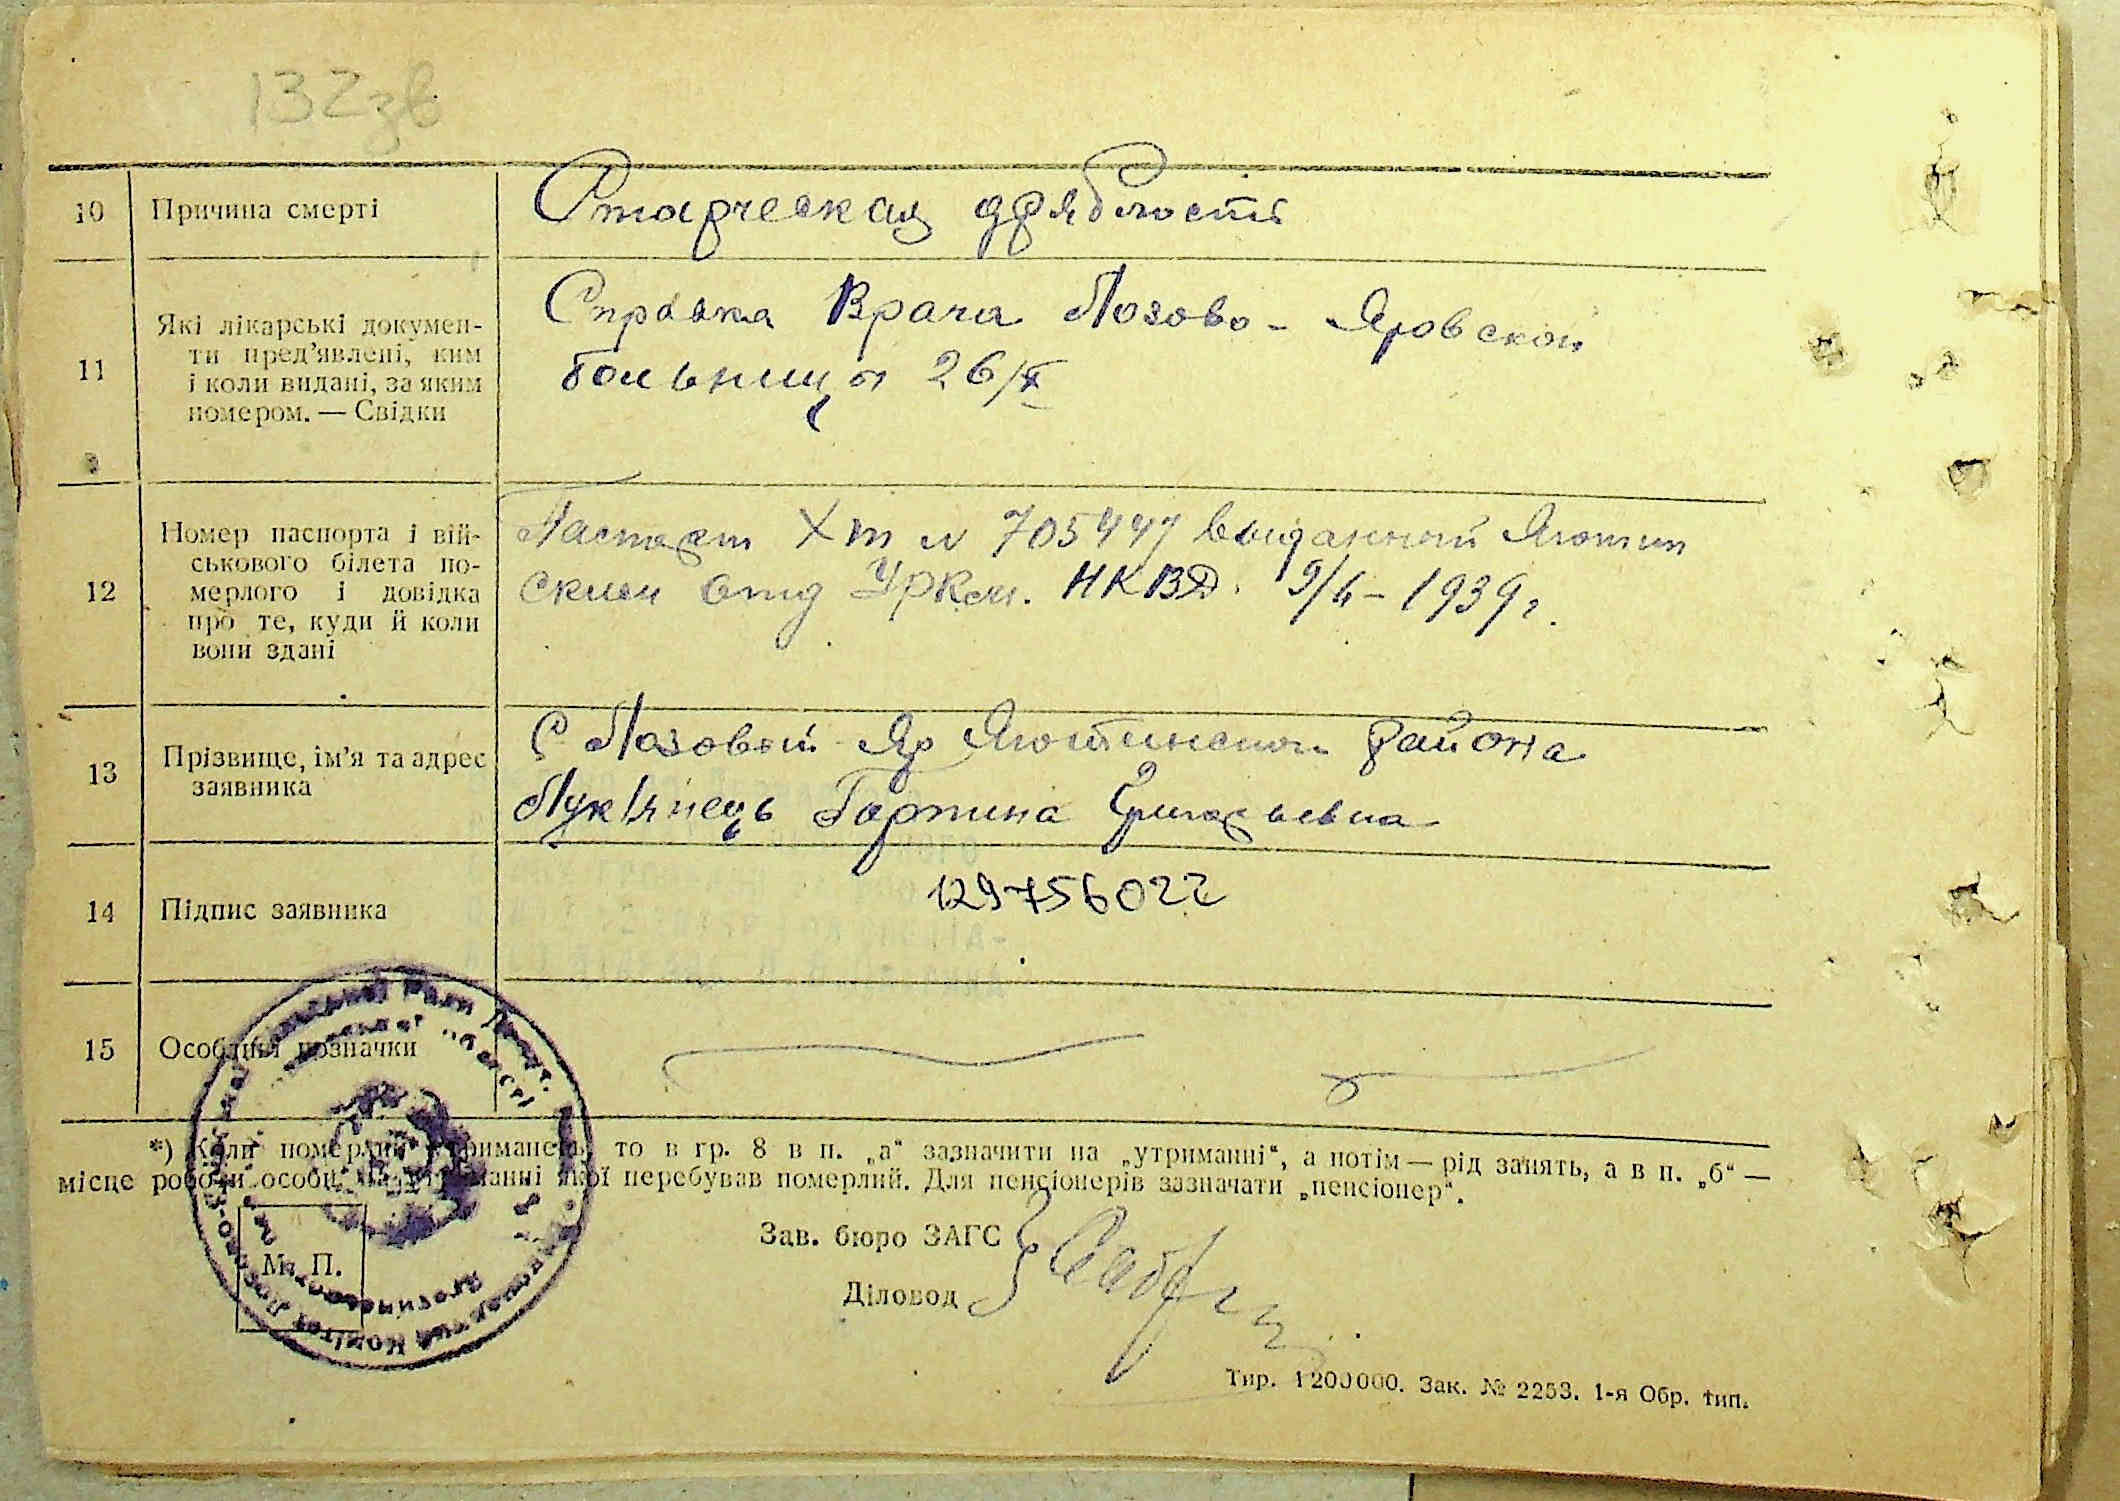 132зв
10 Причина смерті Старческая дряблость
11 Які лікарські докумен-
ти пред’явлені, ким
і коли видані, за яким
номером. — Свідки
Справка Врача Лозово - Яровской
больницы 26/X
12 Номер паспорта і вій-
ськового білета по-
мерлого і довідка
про те, куди й коли
вони здані
Паспорт Хт N 705447 выданный Яготин
ским отд Уркм. НКВД. 9/4 - 1939 г.
13 Прізвище, ім’я та адрес
заявника
С Лозовой Яр Яготинского района
Лук'янець Горпина Григорьевна
14 Підпис заявника 129756022
15 Особливі позначки
*) Коли померлий утриманець, то в гр. 8 в п. „а“ зазначити на „утриманні“, а потім — рід занять, а в п. „б“ —
місце роботи особи, на утриманні якої перебував померлий. Для пенсіонерів зазначати „пенсіонер“.
Зав. бюро ЗАГС
Діловод
М. П.
Тир. 1200000. Зак. № 2253. 1-я Обр. тип.